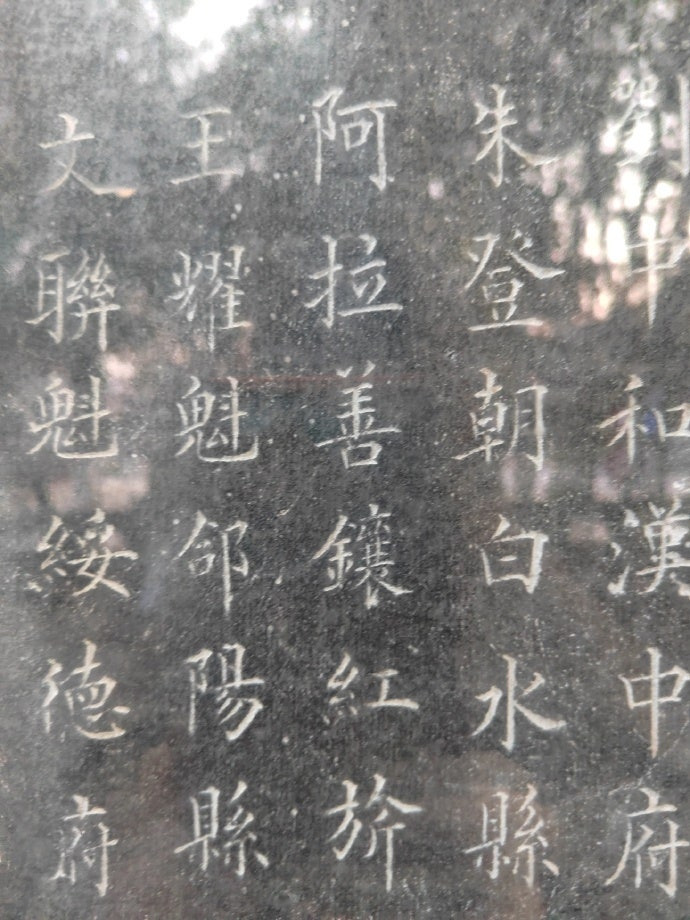 劉中和漢中府
朱登朝白水縣
阿拉善鑲紅旂
王耀魁郃陽縣
文聯魁綏德府